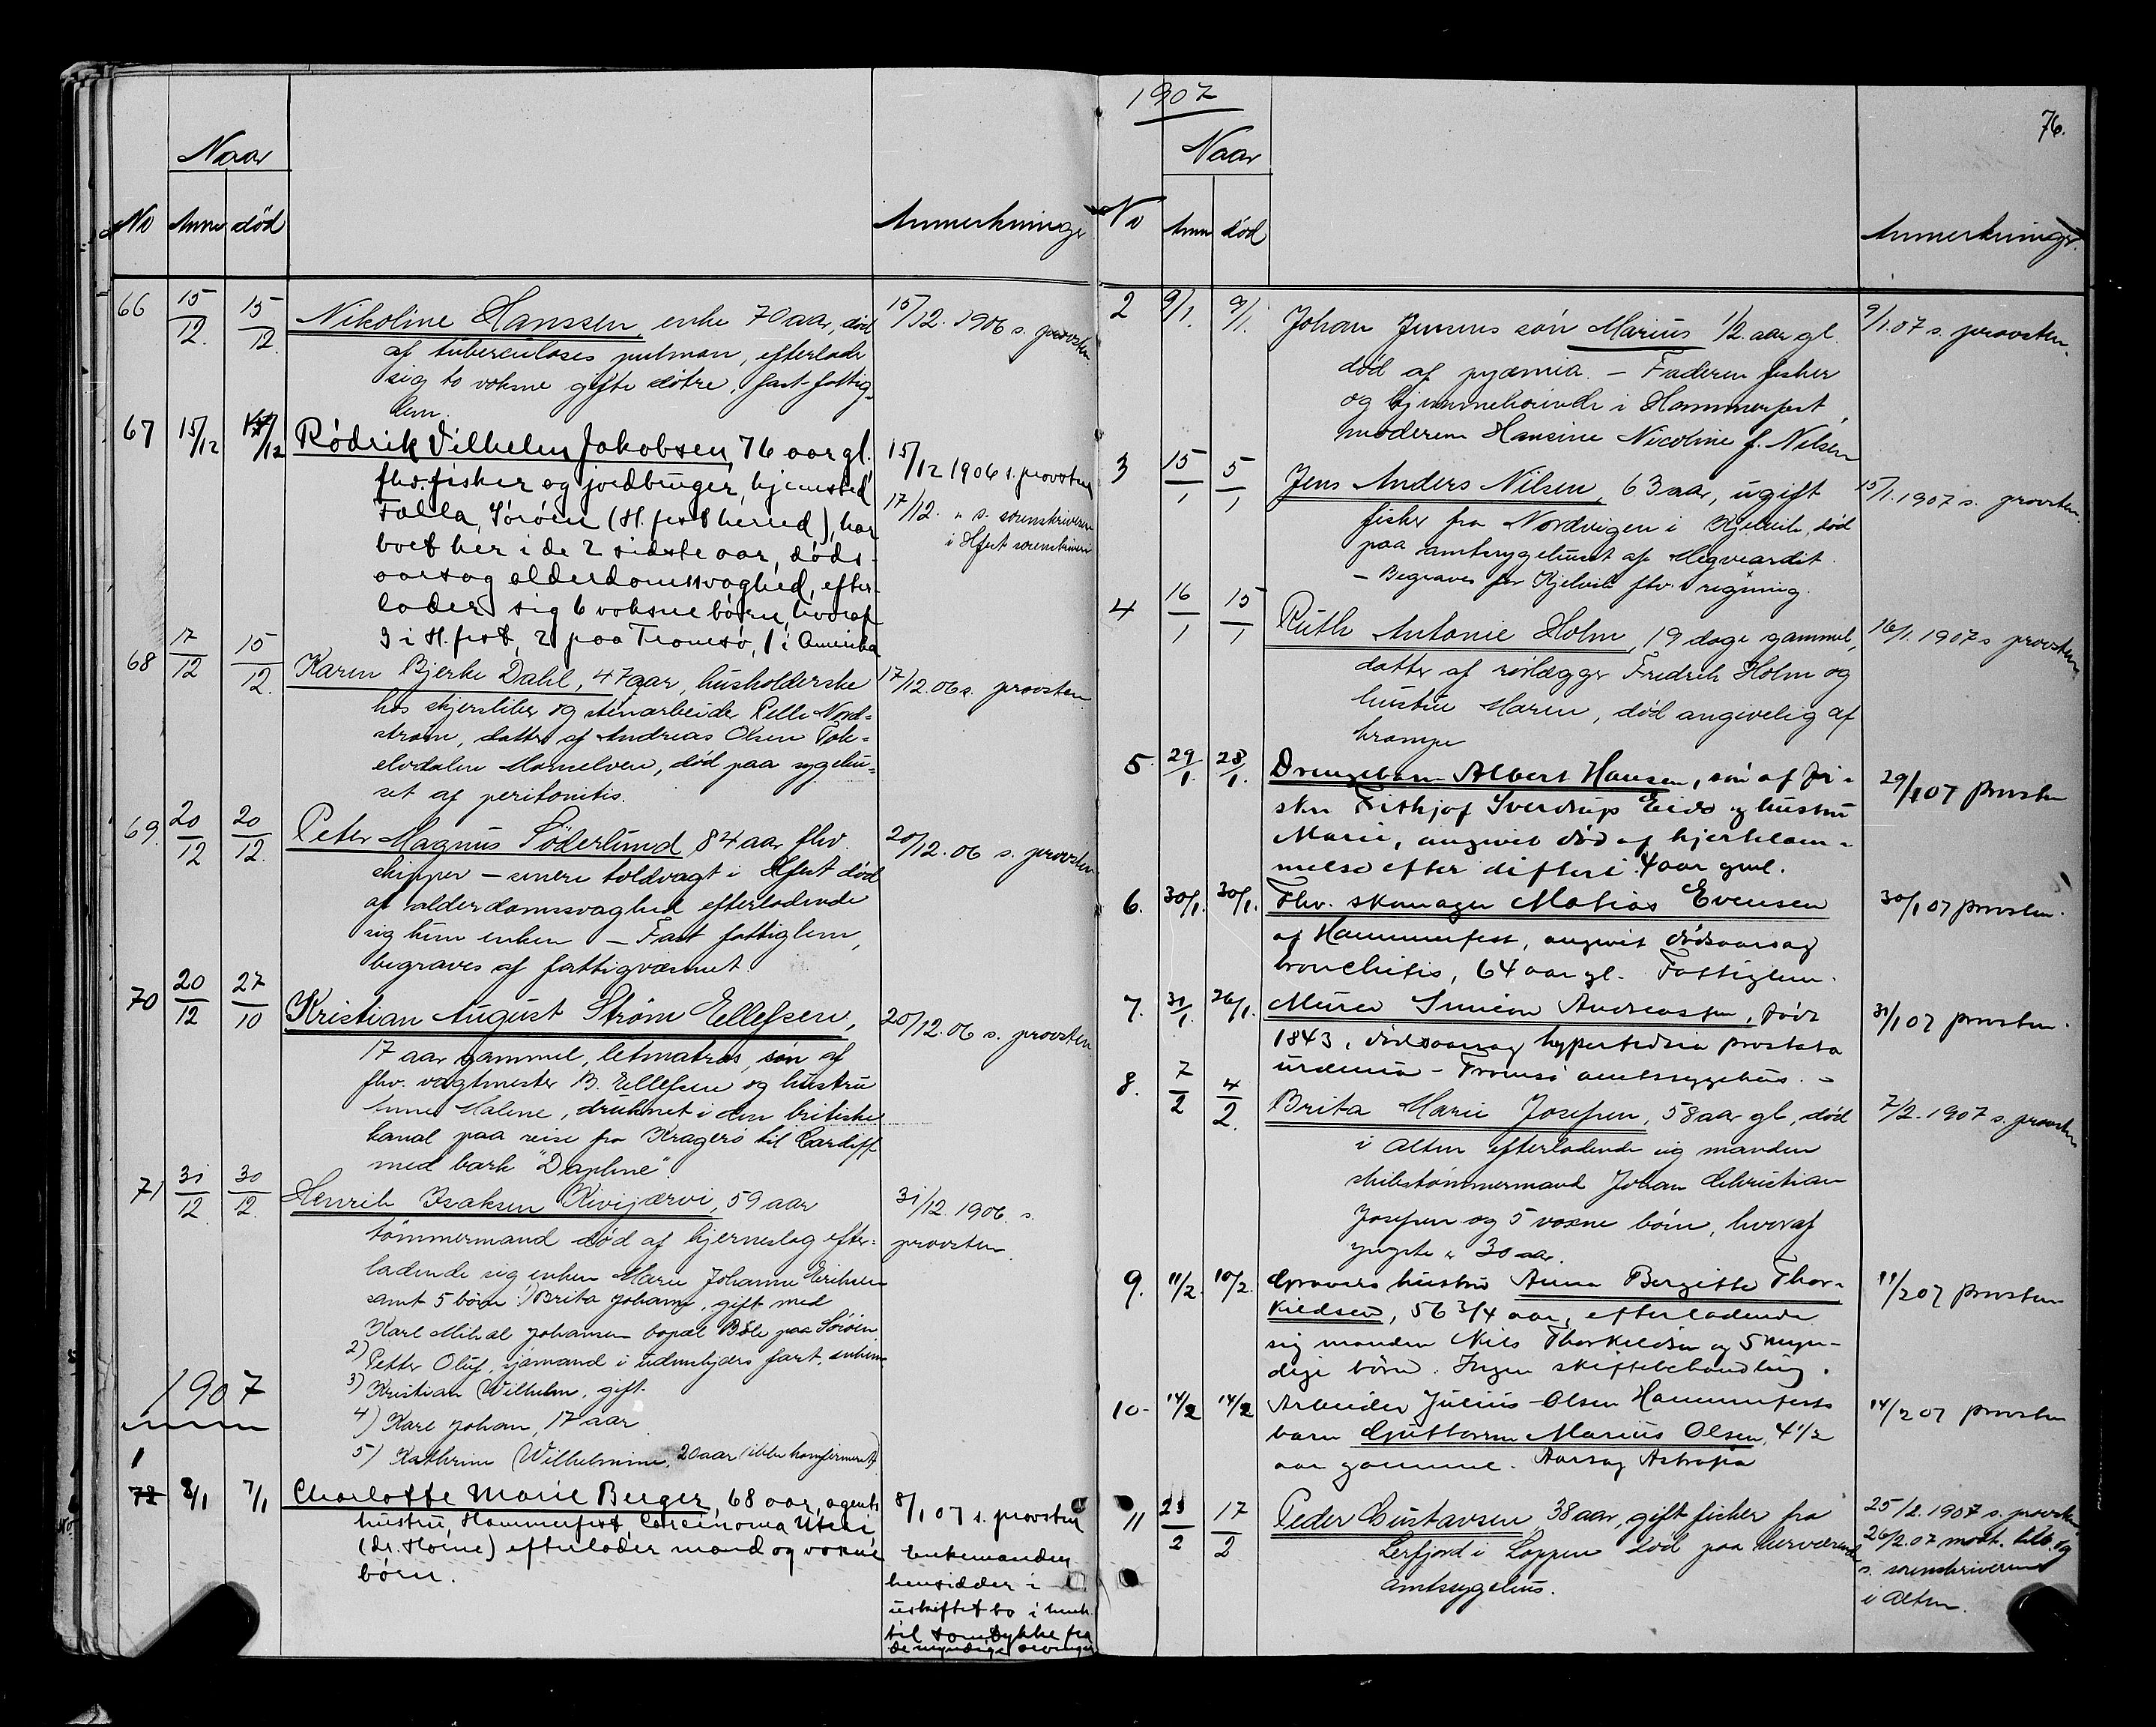 Naar
No Anm død
Anmerkninger
66 15/12. 15/12. Nikoline Hanssen, enke 70 aar, død 15/12. 1906 s. provsten
af tuberculoses pulmon, efterlader
sig to voksne gifte døtre, fast fattig-
lem.
67 15/12 /12 Rødrik Vilhelm Jakobsen, 76 aar gl. 15/12 1906 s. provsten
fhv. fisker og jordbruger, hjemsted 17/12. " s. sorenskriveren
Falla, Sørøen (H.fest herred), har i Hfest sorenskriveri
boet her i de 2 sidste aar, døds-
aarsag alderdomssvaghed, efter-
lader sig 6 voksne børn, hvoraf
3 i H.fest, 2 paa Tromsø, 1 i Amerika
68 17/12 15/12. Karen Bjerke Dahl, 47 aar, husholderske 17/12.06 s. provsten
hos skjersliber og stenarbeider Pelle Nord-
strøm, datter af Andreas Olsen
elvdalen Maalselven, død paa sygehu-
set af peritonitis.
69. 20/12 20/12. Peter Magnus Söderlund 84 aar fhv. 20/12.06 s. provsten
skipper – senere toldvagt i Hfest død
af alderdomssvaghed efterladende
sig kun enken – Fast fattiglem,
begraves af fattigvæsnet.
70 20/12 27/10 Kristian August Strøm Ellefsen, 20/12.06 s. provsten
17 aar gammel, letmatros, søn af
fhv. vagtmester B. Ellefsen og hustru
Anne Malene, druknet i den britiske
kanal paa reise fra Kragerø til Cardiff
med bark "Daphne".
71 31/12. 30/12. Henrik Isaksen Kivijærvi, 59 aar 31/12. 1906. s.
tømmermand død af hjerneslag efter- provsten.
ladende sig enken Marie Johanne Eriksen
samt 5 børn: 1) Brita Johane, gift med
Karl Mikal Johansen bopæl Bøle paa Sørøen
2) Petter Oluf, sjømand i udenrigs fart,
3) Kristian Wilhelm, gift.
1907
4) Karl Johan, 17 aar
5) Kathrine Wilhelmine, 20 aar (ikke konfirmeret)
1
72 8/1 7/1 Charlotte Marie Berger, 68 aar, agents 8/1 07 s. provsten
hustru, Hammerfest, Carcinoma Uteri
(dr. Horne) efterlader mand og voxne Enkemanden
børn. hensidder i
uskiftet bo i henh.
til samtykke fra
de myndige arvinger
1907
76.
Naar
No Anm død
Anmerkninger.
2 9/1. 9/1. Johan Jensens søn Marius 1/2 aar gl. 9/1.07 s. provsten.
død af pyæmia. – Faderen fisker
og hjemmehørende i Hammerfest,
moderen Hansine Nicoline f. Nilsen
3 15/1 5/1 Jens Anders Nilsen, 63 aar, ugift 15/1.1907 s. provsten.
fisker fra Nordvigen i Kjelvik, død
paa amtssygehuset af
– Begraves for Kjelvik ftv. regning.
4 16/1 15/1 Ruth Antonie Holm, 19 dage gammel, 16/1.1907 s provsten
datter af rørlægger Fredrik Holm og
hustru Maren, død angivelig af
krampe
5. 29/1. 28/1. Drengebarn Albert Hansen, søn af fi- 29/1 07 provsten
sker Fithjof Sverdrup Eide og hustru
Marie, angivet død af hjertelam-
melse efter difteri. 4 aar gml.
6. 30/1. 30/1. Fhv. skomager Matias Evensen 30/1 07 provsten.
af Hammerfest, angivet dødsaarsag
bronchitis, 64 aar gl. Fattiglem.
7. 31/1. 26/1. Murer Simeon Andreassen, født 31/1 07 provsten.
1843, dødsaarsag prostata
– Tromsø amtssygehus. –
8. 7/2 4/2. Brita Marie Josefsen, 58 aar gl, død 7/2. 1907 s. provsten
i Alten efterladende sig manden
skibstømmermand Johan Christian
Josefsen og 5 voxne børn, hvoraf
yngste er 30 aar.
9. 11/2. 10/2. Gravers hustru Anna Bergitte Thor- 11/2 07 provsten
kildsen, 56 3/4 aar, efterladende
sig manden Nils Thorkildsen og 5 myn-
dige børn. Ingen skiftebehandling.
10- 14/2 14/2 Arbeider Julius Olsen Hammerfests 14/2 07 provsten
barn Guttorm Marius Olsen, 4 1/2
aar gamme. Aarsag Astrofia
11 23/2 17/2 Peder Gustavsen, 38 aar, gift fisker fra 25/2. 1907 s. provsten
Lerfjord i Loppen død paa herværende 26/2.07 modt. tilb. og
amtssygehus. s. sorenskriveren
i Alten.